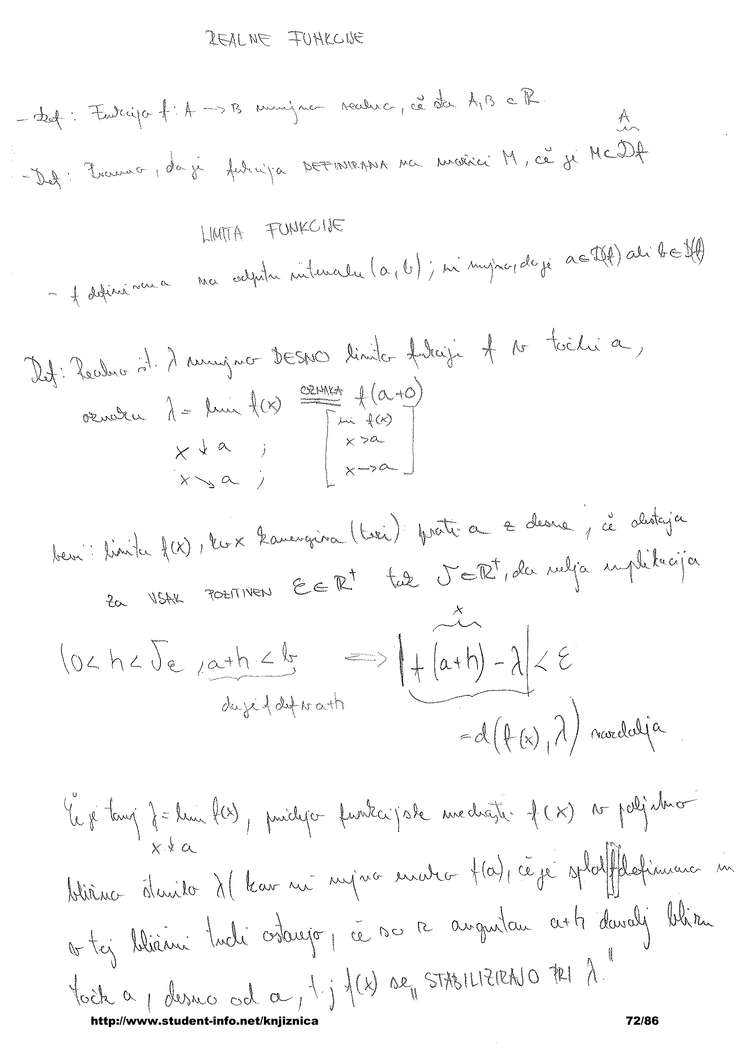 REALNE FUNKCIJE
- Def: Funkcija f: A → B imenujemo realna, če sta A, B ⊂ ℝ.
A
- Def: Pravimo, da je funkcija DEFINIRANA na množici M, če je M ⊂ Df
LIMITA FUNKCIJE
- f definirana na odprtem intervalu (a, b); ni nujno, da je a ∈ D(f) ali b ∈ D(f)
Def: Realno št. λ imenujemo DESNO limito funkcije f v točki a,
oznaka λ = lim f(x) OZNAKA f(a+0)
x ↓ a ; x ↘ a ;
[ f(x) x > a x → a ]
limita f(x), ko x konvergira proti a z desne, če obstaja
za VSAK POZITIVEN ε ∈ ℝ⁺ tak δ ∈ ℝ⁺, da velja implikacija
x
(0 < h < δε, a+h < b ⟹ |f(a+h) - λ| < ε
da je f def v a+h
= d(f(x), λ) razdalja
Če je torej λ = lim f(x), pridejo funkcijske vrednosti f(x) v poljubno
x ↓ a
bližino števila λ (kar ni nujno enako f(a), če je sploh f definirana in
v tej bližini tudi ostanejo, če so argumenti a+h dovolj blizu
točki a, desno od a, t.j. f(x) se „STABILIZIRAJO PRI λ."
http://www.student-info.net/knjiznica
72/86